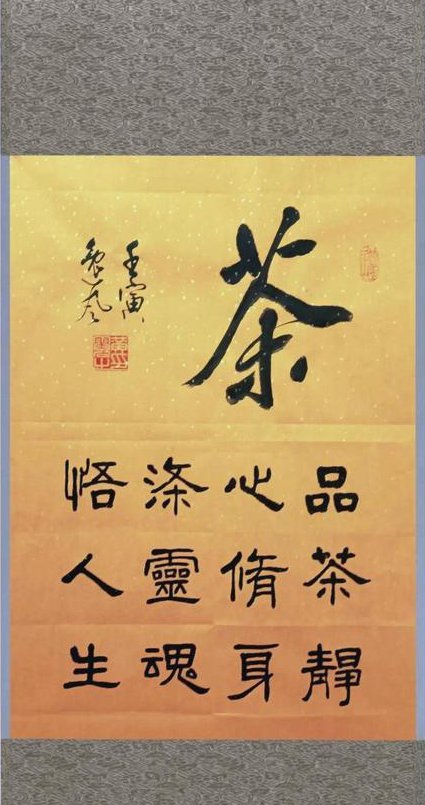 茶
壬寅
品茶靜
心脩身
涤靈魂
悟人生